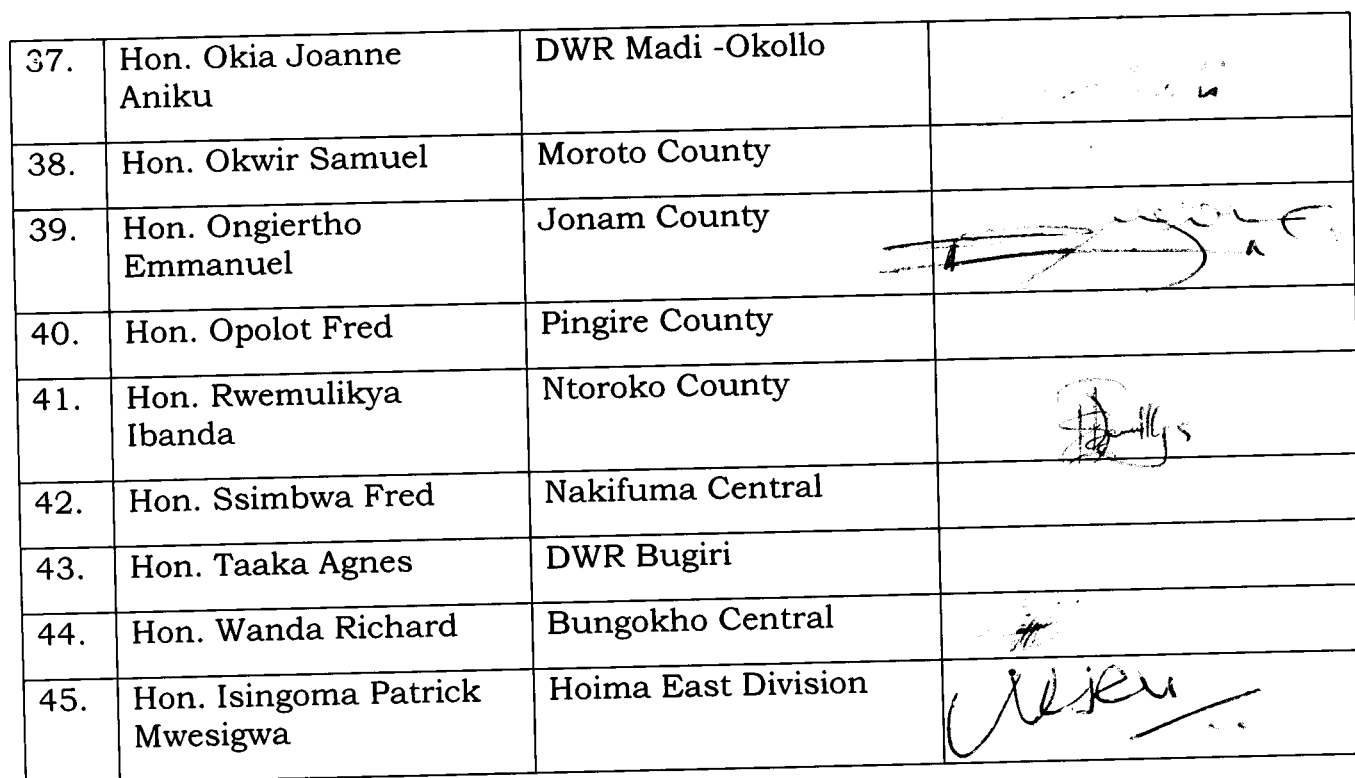 37. Hon. Okia Joanne Aniku DWR Madi -Okollo
38. Hon. Okwir Samuel Moroto County
39. Hon. Ongiertho Emmanuel Jonam County
40. Hon. Opolot Fred Pingire County
41. Hon. Rwemulikya Ibanda Ntoroko County
42. Hon. Ssimbwa Fred Nakifuma Central
43. Hon. Taaka Agnes DWR Bugiri
44. Hon. Wanda Richard Bungokho Central
45. Hon. Isingoma Patrick Mwesigwa Hoima East Division